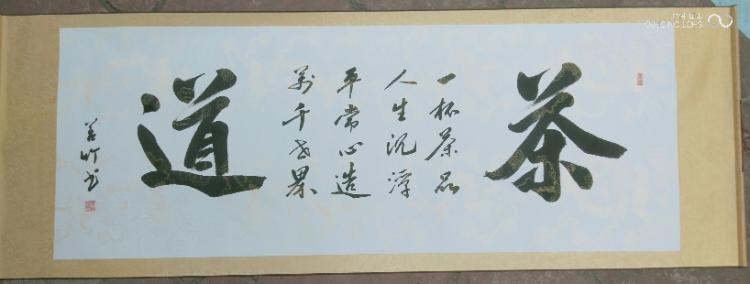 茶
一杯茶品
人生沉浮
平常心造
萬千世界
道
竹书